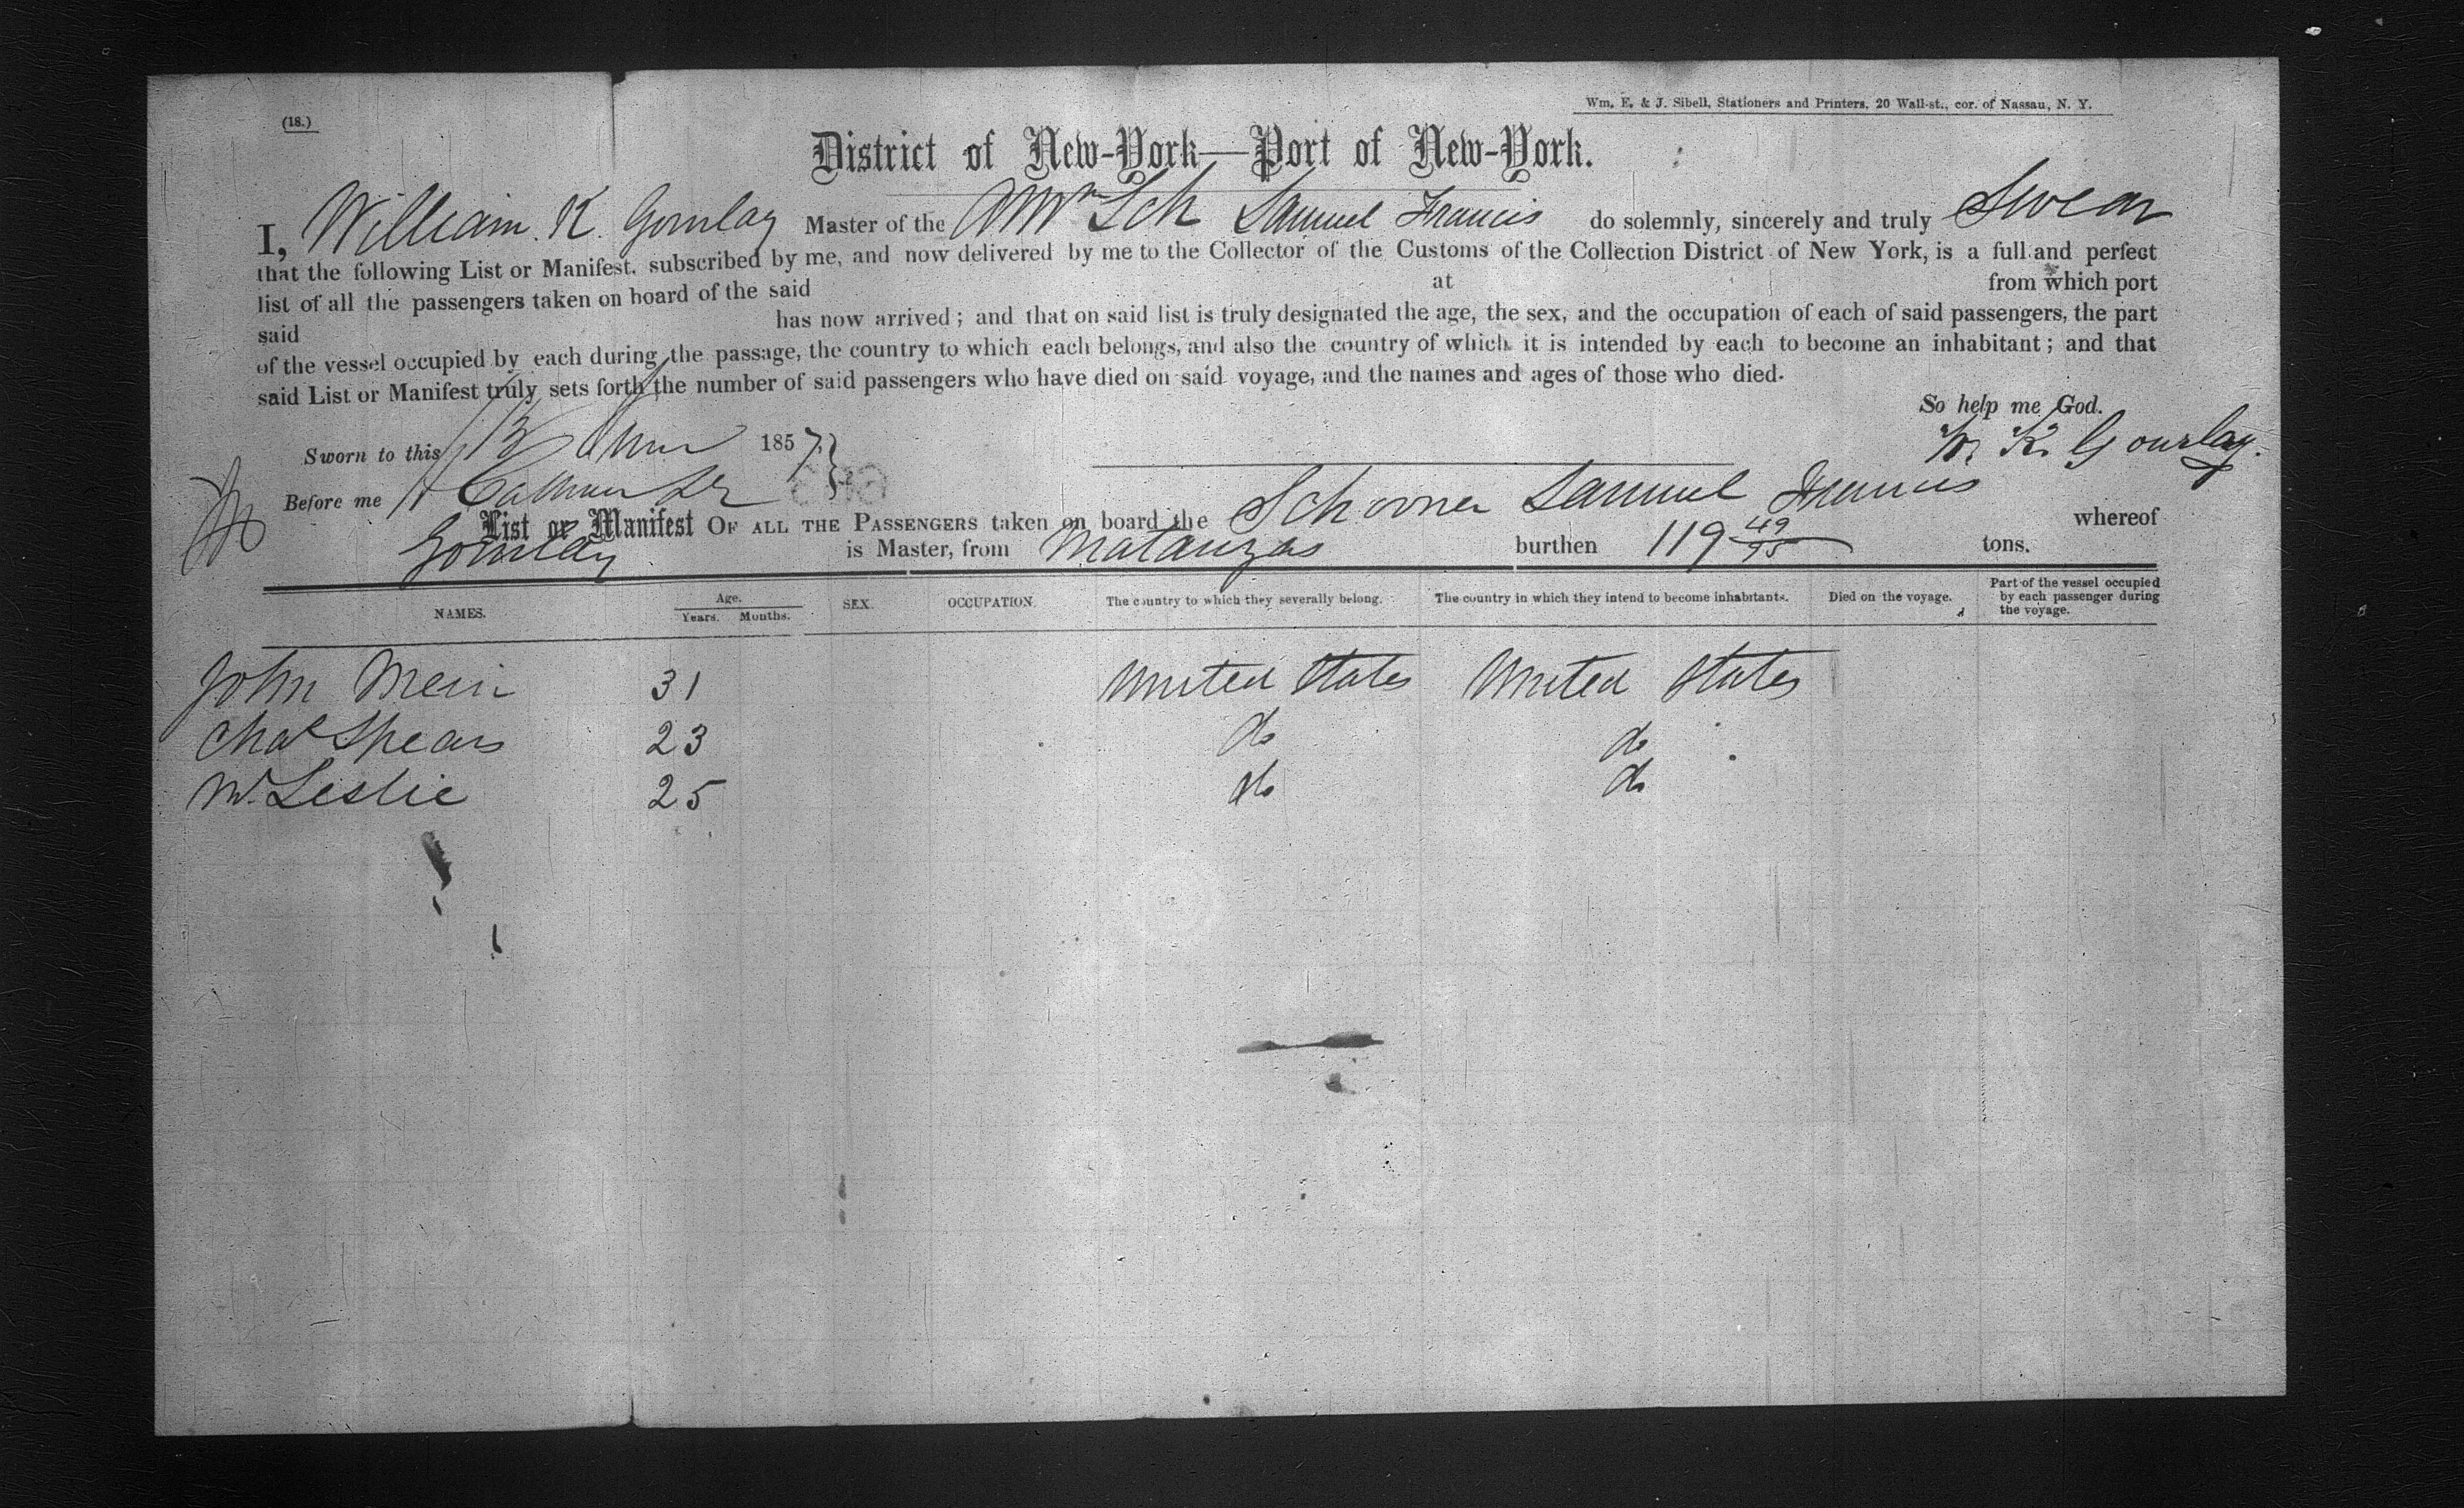 (18.)
Wm. E. & J. Sibell, Stationers and Printers, 20 Wall-st., cor. of Nassau, N. Y.
District of New-York—Port of New-York.
I, William. K. Gourlay Master of the Amn Sch Samuel Francis do solemnly, sincerely and truly Swear
that the following List or Manifest, subscribed by me, and now delivered by me to the Collector of the Customs of the Collection District of New York, is a full and perfect
list of all the passengers taken on board of the said at from which port
said has now arrived; and that on said list is truly designated the age, the sex, and the occupation of each of said passengers, the part
of the vessel occupied by each during the passage, the country to which each belongs, and also the country of which it is intended by each to become an inhabitant; and that
said List or Manifest truly sets forth the number of said passengers who have died on said voyage, and the names and ages of those who died.
So help me God.
Sworn to this 13 1857
W. K. Gourlay.
Before me
List or Manifest OF ALL THE PASSENGERS taken on board the Schooner Samuel Francis whereof
Gourlay is Master, from Matanzas burthen 119 49/95 tons.
NAMES. Age. Years. Months. SEX. OCCUPATION. The country to which they severally belong. The country in which they intend to become inhabitants. Died on the voyage. Part of the vessel occupied by each passenger during the voyage.
John Mein 31 United States United States
Chas Spears 23 do do
W. Leslie 25 do do